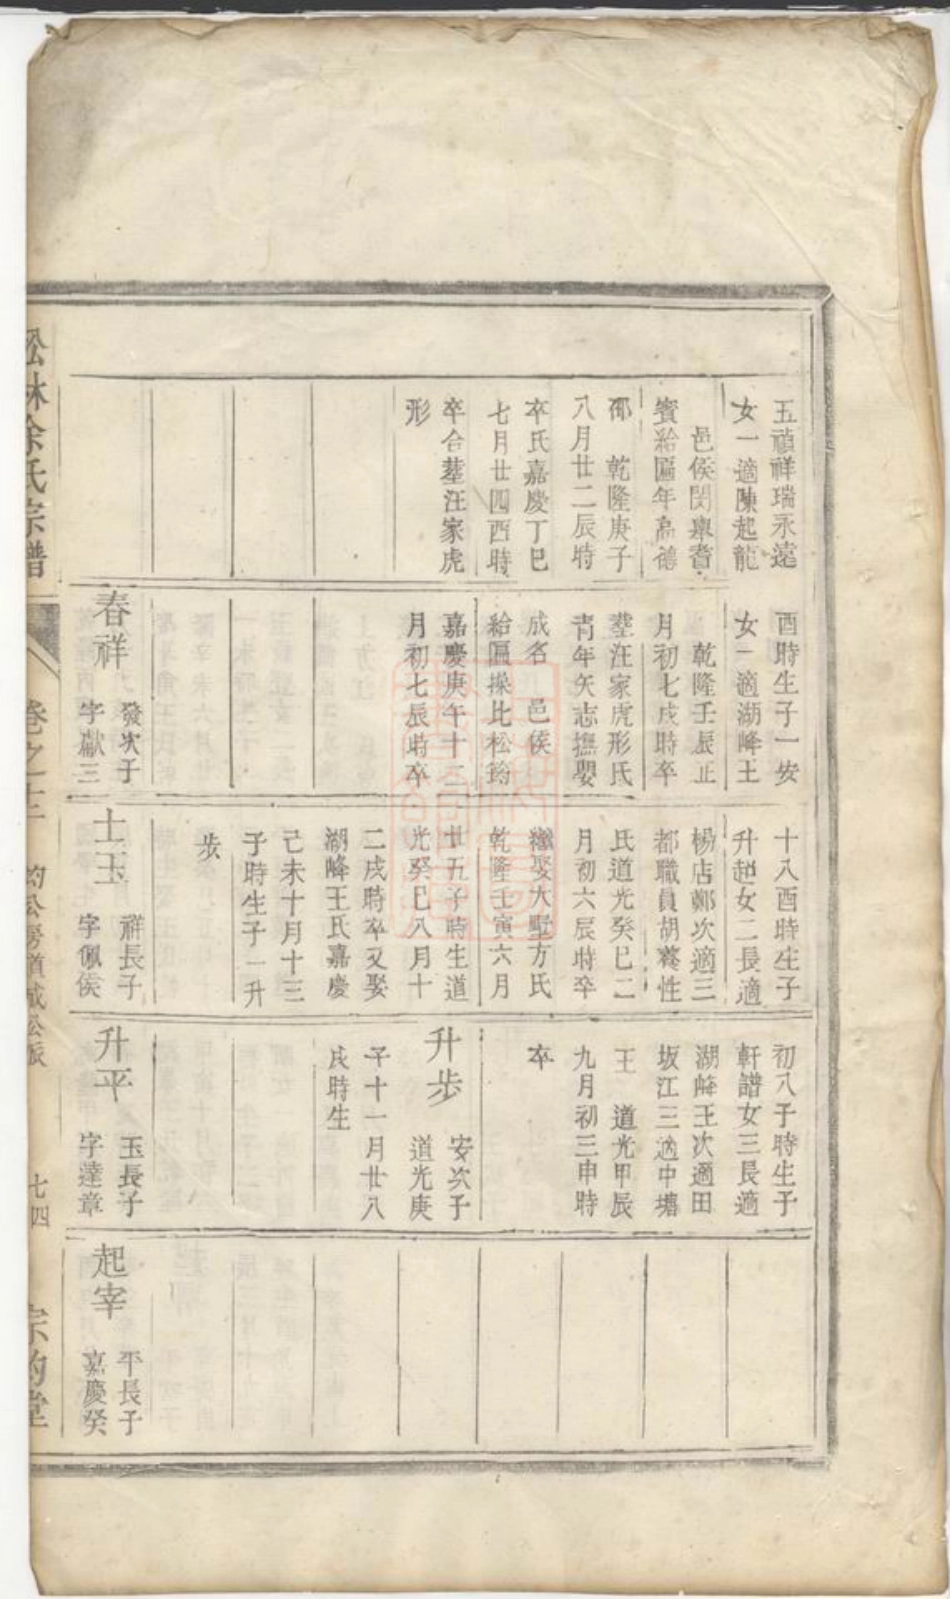 五禎祥瑞永遠
女一適陳起龍
邑侯閔舉耆
賓給匾年高德
邵　乾隆庚子
八月廿二辰時
卒氏嘉慶丁巳
七月廿四酉時
卒合塟汪家虎
形
酉時生子一安
女一適湖峰王
乾隆壬辰正
月初七戌時卒
塟汪家虎形氏
青年矢志撫嬰
成名　邑侯
給匾操比松筠
嘉慶庚午十二
月初七辰時卒
春祥
發次子
字獻三
十八酉時生子
升超女二長適
楊店鄭次適三
都職員胡養性
氏道光癸巳二
月初六辰時卒
繼娶大墅方氏
乾隆壬寅六月
廿五子時生道
光癸巳八月十
二戌時卒又娶
湖峰王氏嘉慶
己未十月十三
子時生子一升
步
士玉
祥長子
字佩侯
初八子時生子
軒譜女三長適
湖峰王次適田
坂江三適中塘
王　道光甲辰
九月初三申時
卒
升步
安次子
道光庚
子十一月廿八
戌時生
升平
玉長子
字達章
起宰
平長子
嘉慶癸
松林余氏宗譜
卷之十二
灼公房道成公派
七四